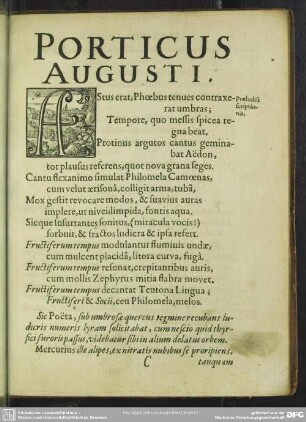 PORTICUS
AUGUSTI.
AEstus erat, Phœbus tenues contraxe-
rat umbras;
Tempore, quo messis spicea re-
gna beat.
Protinus argutos cantus gemina-
bat Aëdon,
tot plausus referens, quot nova grana seges.
Cantu flexanimo simulat Philomela Camœnas,
cum velut ærisonâ, colligit arma, tubâ,
Mox gestit revocare modos, & suavius auras
implere, ut nivei dimpida, fontis aqua.
Sicque susurrantes sonitus, (miracula vocis!)
sorbuit, & fractos ludicra & ipsa refert.
Fructiferum tempus modulantur fluminis undæ,
cum mulcent placidâ, litora curva, fugâ.
Fructiferum tempus resonat, crepitantibus auris,
cum mollis Zephyrus mitia flabra movet.
Fructiferum tempus decantat Teutona Lingua;
Fructiferi & Socii, ceu Philomela, melos.
Sic Poëta, sub umbrosæ quercus tegmine recubans lu-
dicris numeris lyram solicitabat, cum nescio quid thyr-
sici furoris passus, videbatur sibi in alium delatus orbem.
Mercurius
C
tanquam